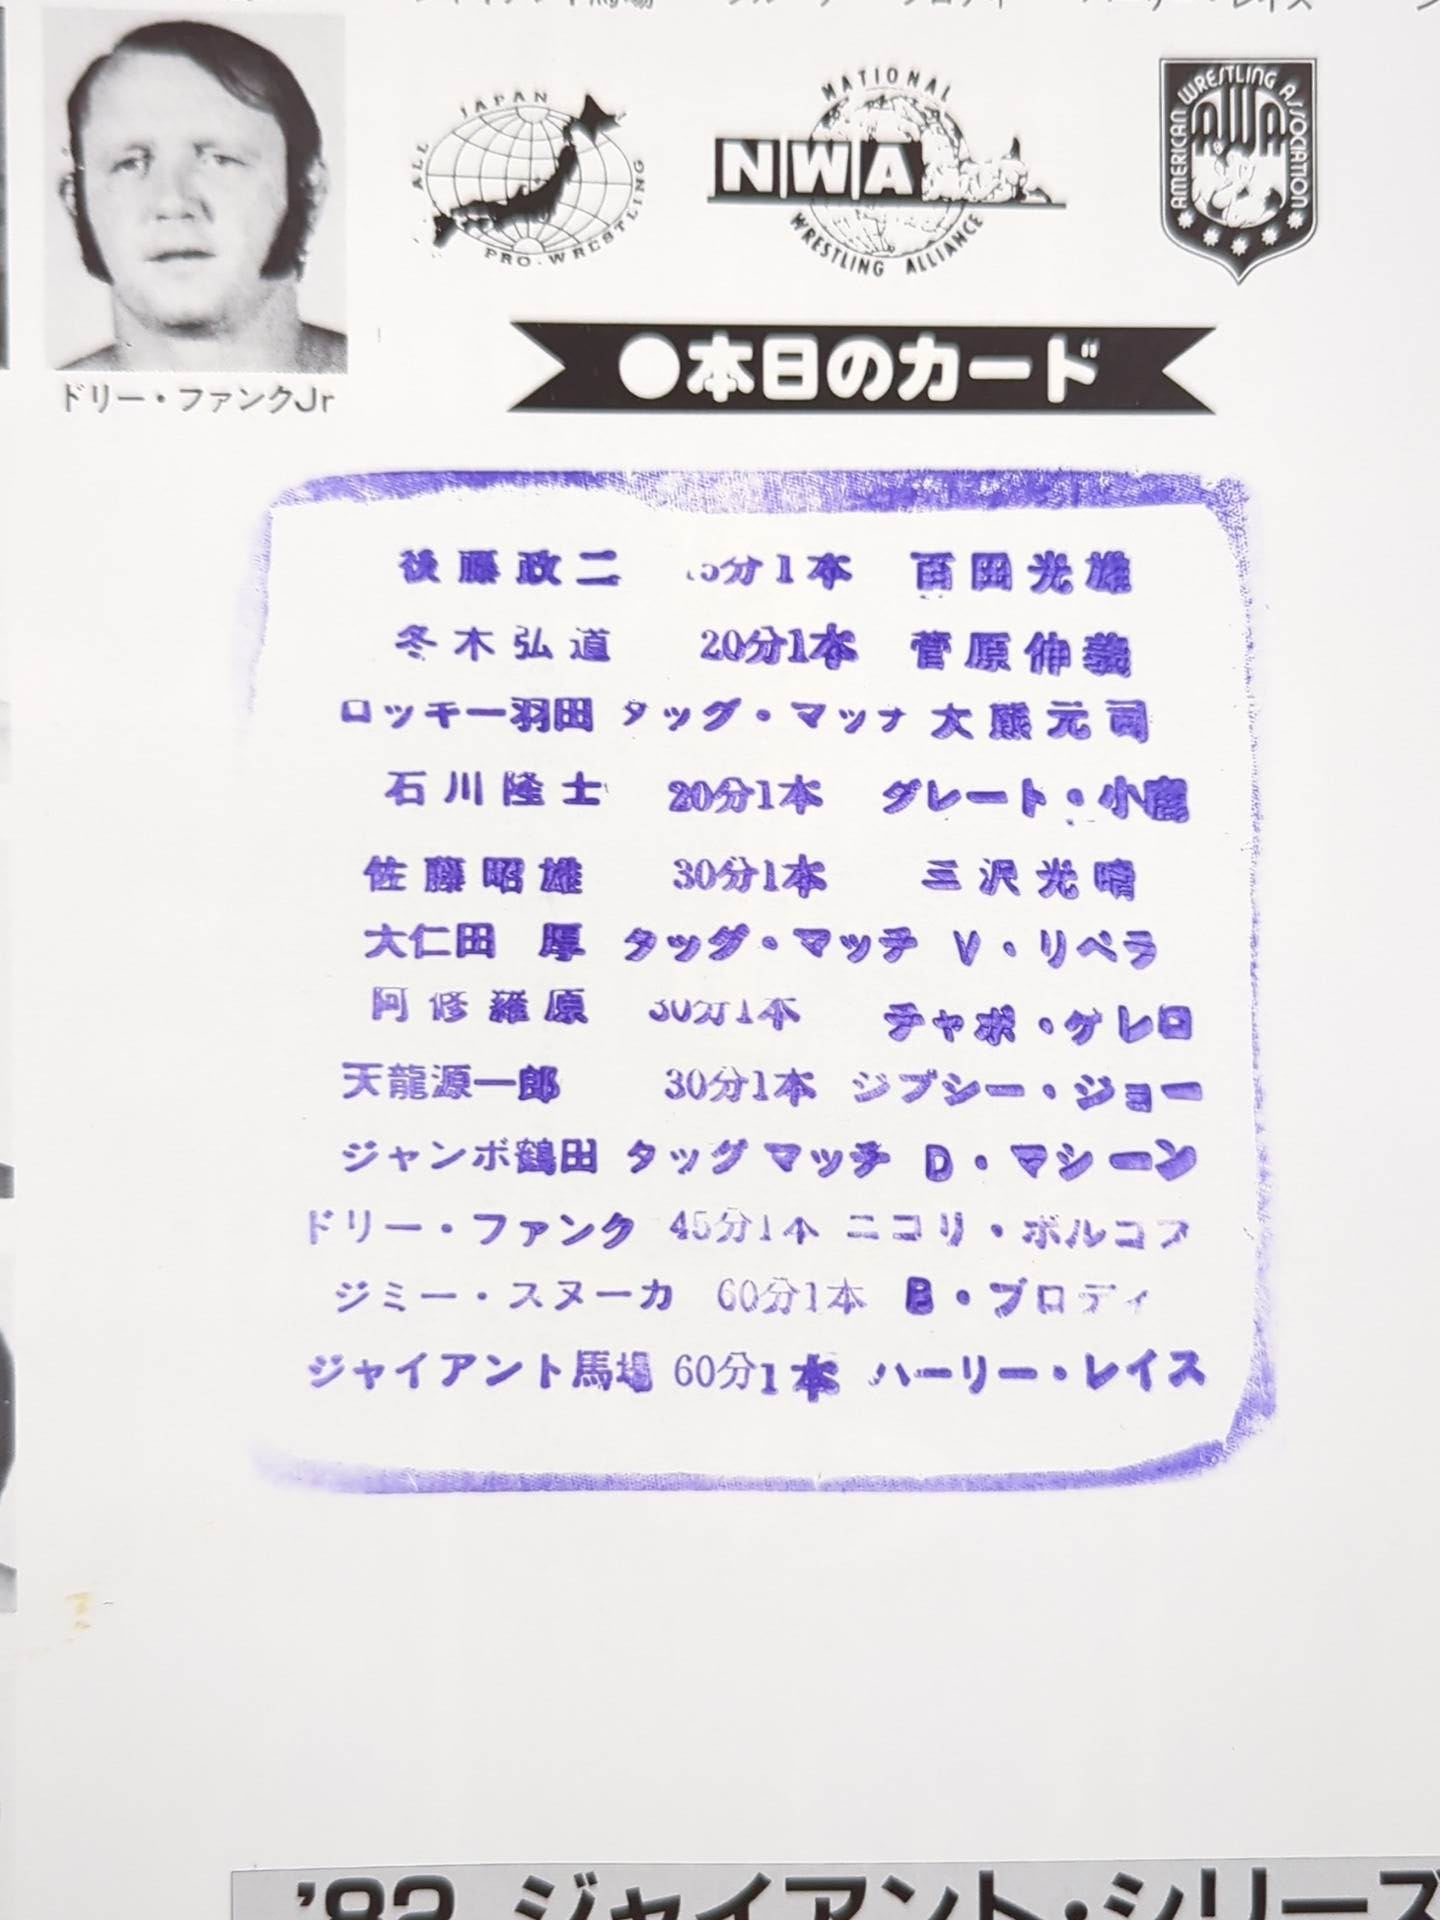 ALL JAPAN PRO.WRESTLING
NATIONAL
NWA
WRESTLING ALLIANCE
AMERICAN WRESTLING ASSOCIATION
AWA
ドリー・ファンクJr
●本日のカード
後藤政二 5分1本 百田光雄
冬木弘道 20分1本 菅原伸義
ロッキー羽田 タッグ・マッチ 大熊元司
石川隆士 20分1本 グレート・小鹿
佐藤昭雄 30分1本 三沢光晴
大仁田 厚 タッグ・マッチ V・リベラ
阿修羅原 30分1本 チャボ・ゲレロ
天龍源一郎 30分1本 ジプシー・ジョー
ジャンボ鶴田 タッグマッチ D・マシーン
ドリー・ファンク 45分1本 ニコリ・ボルコフ
ジミー・スヌーカ 60分1本 B・ブロディ
ジャイアント馬場 60分1本 ハーリー・レイス
'82 ジャイアント・シリーズ